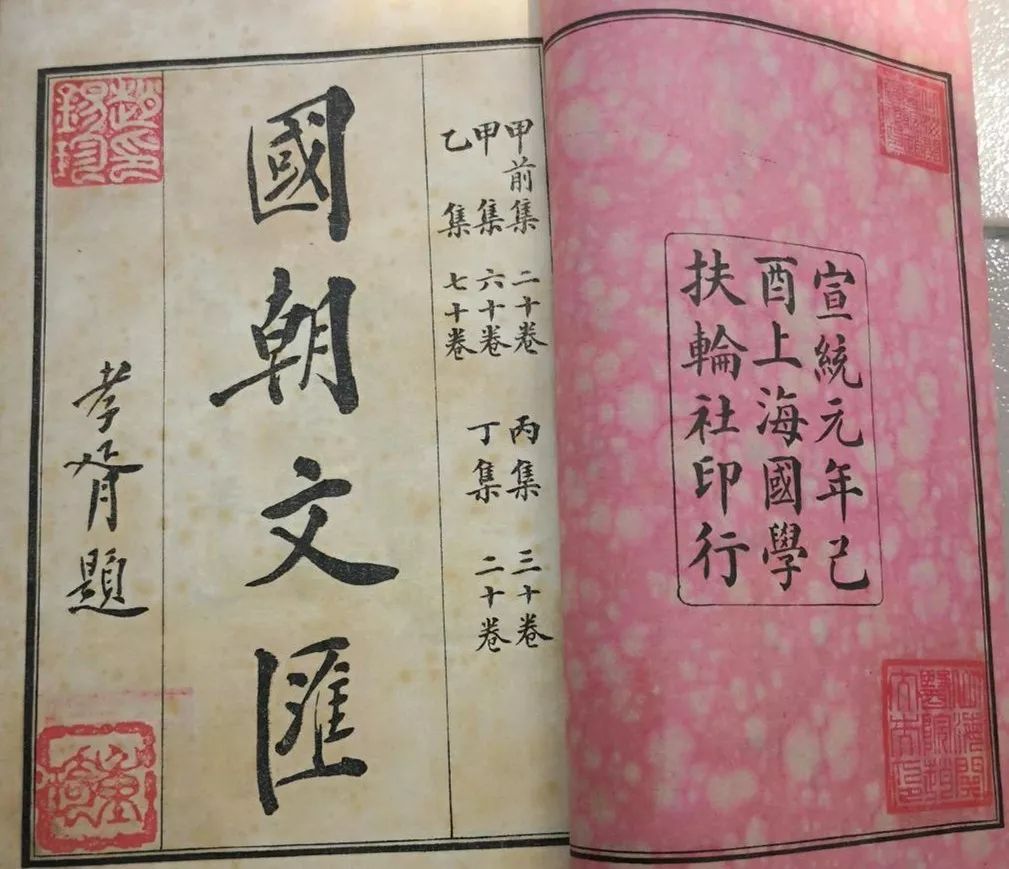 宣統元年己
酉上海國學
扶輪社印行
山海關
醫院趙
大夫印
甲前集 二十卷 丙集 三十卷
甲集 六十卷 丁集 二十卷
乙集 七十卷
國朝文匯
孝胥題